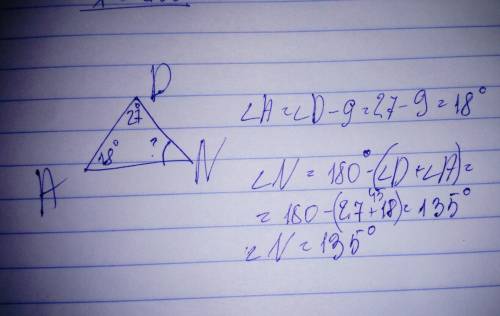 D
27°
18°
?
A
N
∠A = ∠D - 9 = 27 - 9 = 18°
∠N = 180° - (∠D + ∠A) =
45
= 180 - (27 + 18) = 135°
∠N = 135°